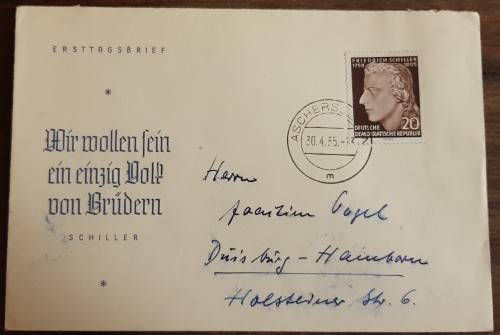 ERSTTAGSBRIEF
*
Wir wollen sein
ein einzig Volk
von Brüdern
SCHILLER
*
FRIEDRICH SCHILLER
1759 1805
20
DEUTSCHE
DEMOKRATISCHE REPUBLIK
ASCHERS
30.4.55.-
m
Herrn
Joachim Vogel
Duisburg-Hamborn
Holsteiner Str. 6.